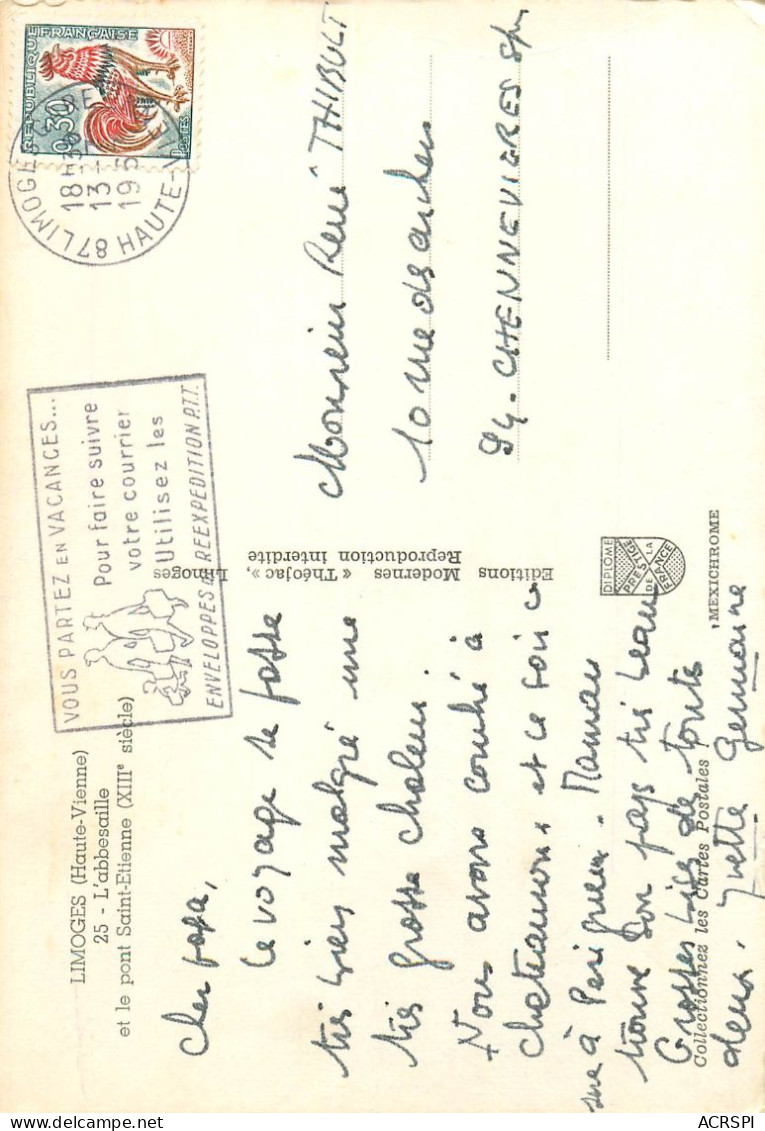 LIMOGES (Haute-Vienne)
25 - L'abbesaille
et le pont Saint-Etienne (XIIIe siècle)
Cher papa,
Le voyage se passe
très bien malgré une
très grosse chaleur.
Nous avons couché à
chateauroux et ce soir
à Perigueux. Maman
trouve son pays très beau
Grosses bises de toutes
deux. Yvette Germaine
Collectionnez les Cartes Postales
Editions Modernes « Théojac », Limoges
Reproduction interdite
DIPLOME
PRESTIGE
DE LA
FRANCE
"MEXICHROME"
VOUS PARTEZ EN VACANCES...
Pour faire suivre
votre courrier
Utilisez les
ENVELOPPES DE REEXPEDITION P.T.T.
REPUBLIQUE FRANÇAISE
0,30
POSTES
87 LIMOGES
18H30
13-
195
HAUTE-VIENNE
Monsieur René THIBULT
10 rue des
94. CHENNEVIERES S/M
ACRSPI